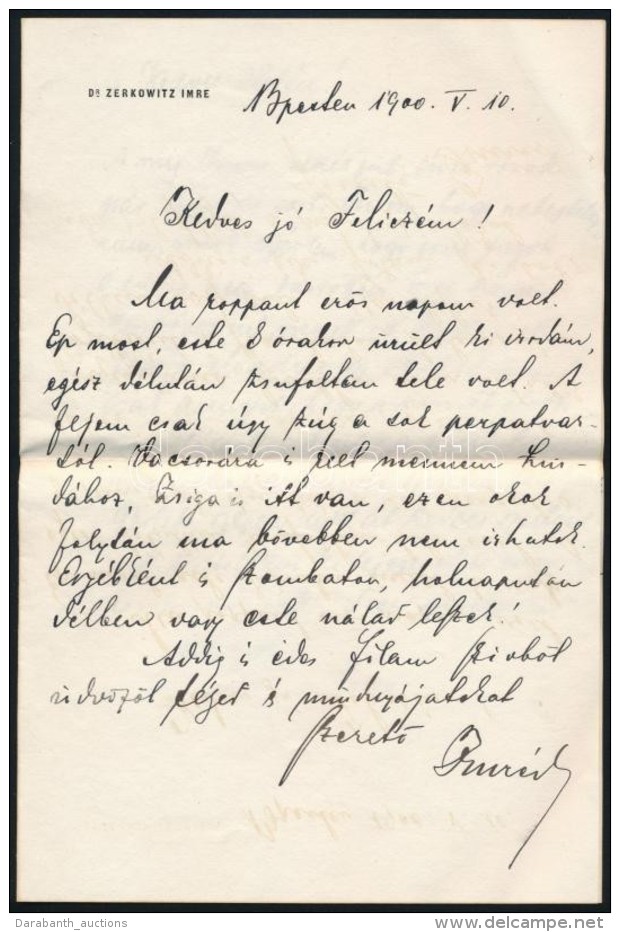 Dr ZERKOWITZ IMRE
Bpesten 1900. V. 10.
Kedves jó Feliczém!
Ma roppant erős napom volt.
Ép most, este 8 órakor ürült ki irodám,
egész délután zsufoltan tele volt. A
fejem csak úgy zúg a sok perpatvar-
tól. Vacsorára is kell mennem
dához, Zsiga is itt van, ezen okok
folytán ma bővebben nem irhatok.
Egyébként is szombaton, holnapután
délben vagy este nálad leszek!
Addig is édes fílam szivből
üdvözöl téged is mindnyájatokat
szerető
Imréd
darabanth
Darabanth_auctions
delcampe.net